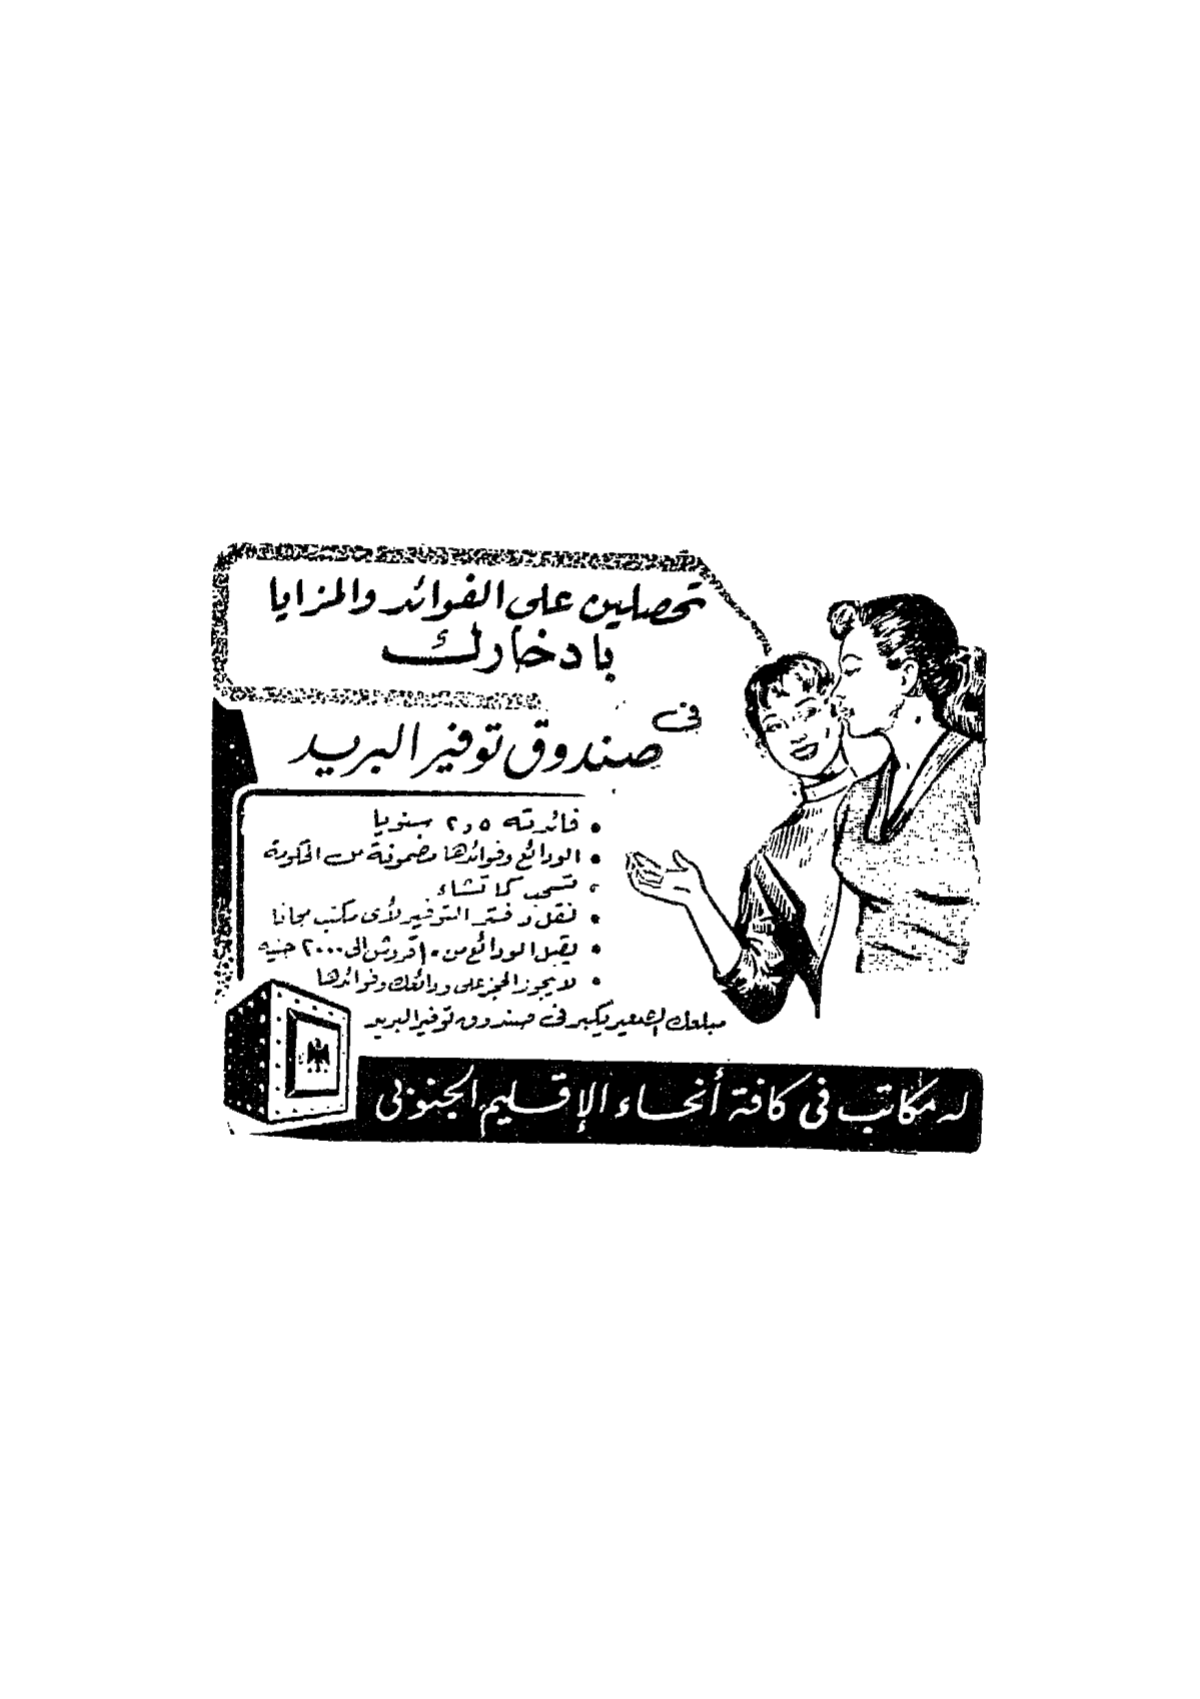 تحصلين على الفوائد والمزايا
بادخارك
فى
صندوق توفير البريد
• فائدته ٢,٥ سنويا
• الودائع وفوائدها مضمونة من الحكومة
• تسحب كما تشاء
• نقل دفتر التوفير لأى مكتب مجانا
• يقبل الودائع من ١٠ قروش الى ٢٠٠٠ جنيه
• لا يجوز الحجز على ودائعك وفوائدها
مبلغك الصغير يكبر فى صندوق توفير البريد
له مكاتب فى كافة أنحاء الإقليم الجنوبى